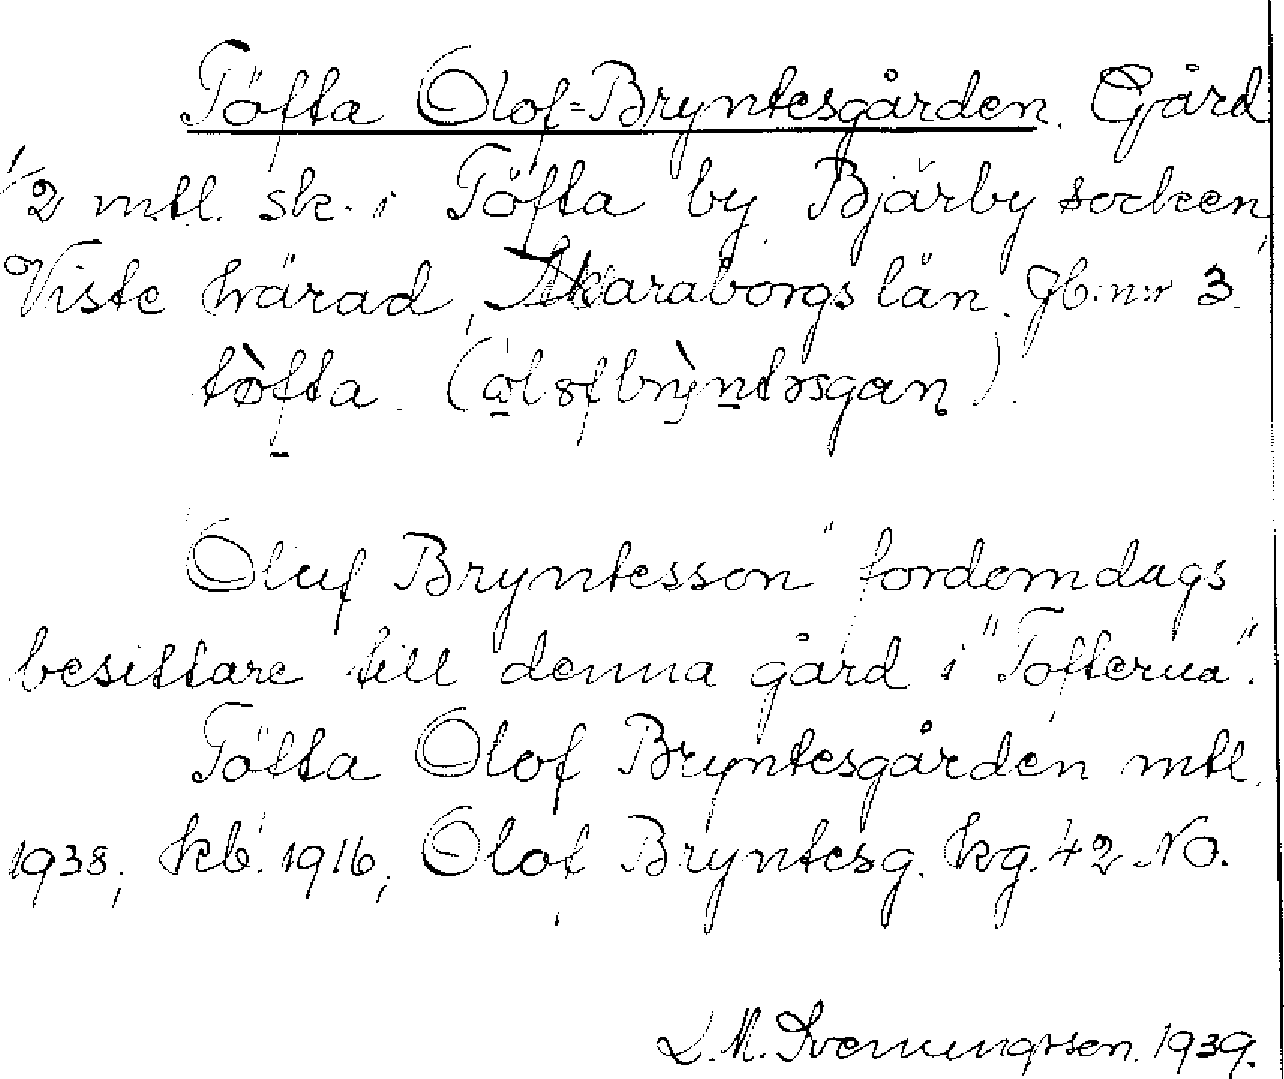 Töfta Olof-Bryntesgården. Gård
1/2 mtl. sk. i Töfta by, Bjärby socken,
Viste härad, Skaraborgs län. Jb. n:r 3.
tòfta. (ålɷfbrỳntəsgaɳ).
"Oluf Bryntesson" fordomdags
besittare till denna gård i "Tofterna".
Töfta Olof Bryntesgården mtl.
1938, kb. 1916, Olof Bryntesg. kg. 42 NO.
L. M. Svenungsson. 1939.